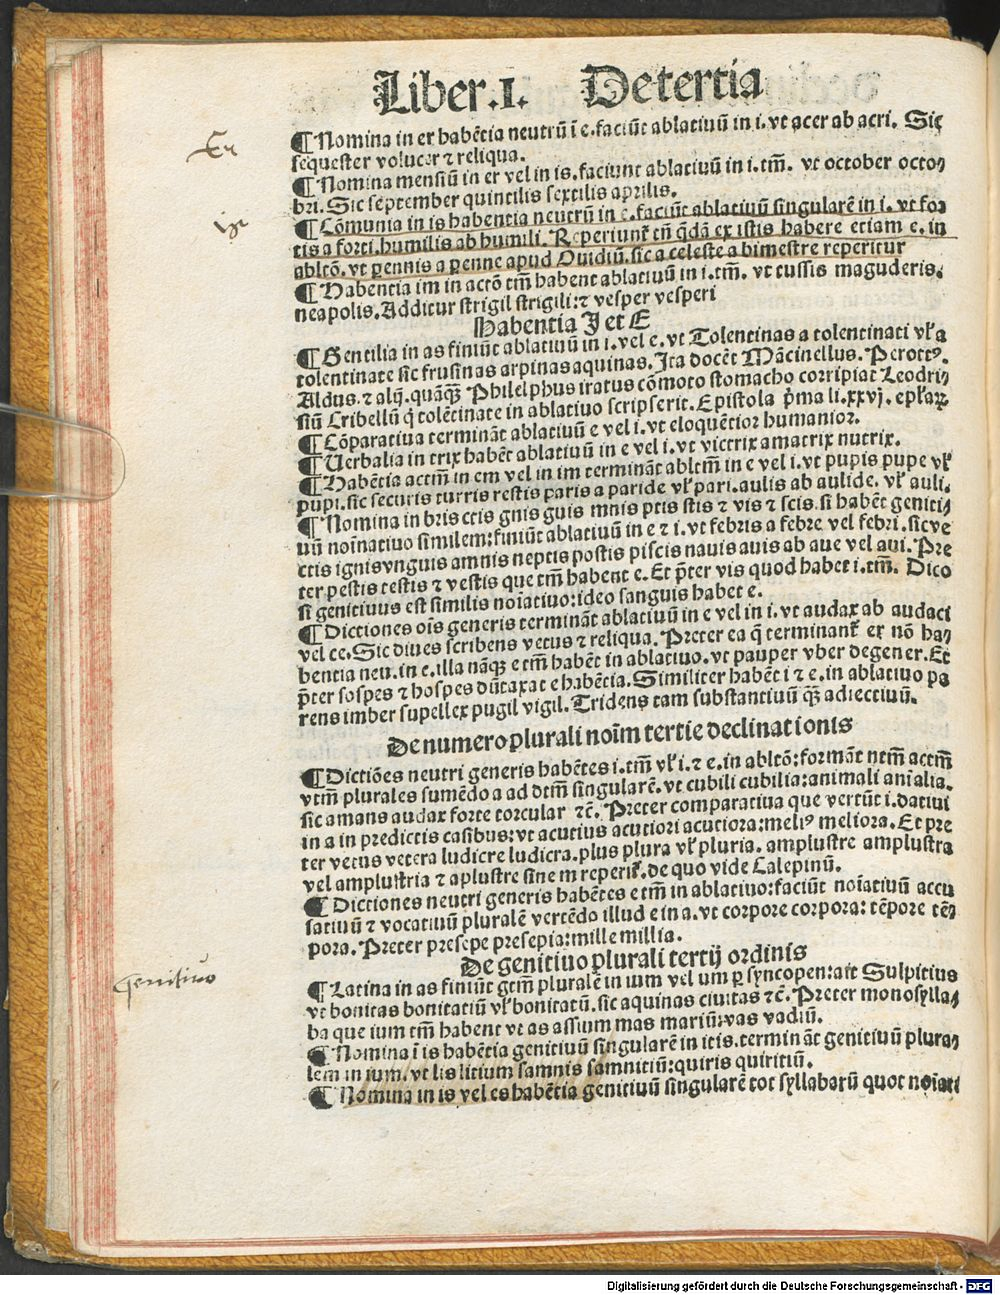 Liber.I. De tertia
¶ Nomina in er habẽtia neutrũ ĩ e.faciũt ablatiuũ in i.vt acer ab acri. Sic
Er
sequester volucer ⁊ reliqua.
¶ Nomina mensiũ in er vel in is.faciunt ablatiuũ in i.tm̃. vt october octo⸗
bri.Sic september quintilis sextilis aprilis.
¶ Cõmunia in is habentia neutrũ in e.faciũt ablatiuũ singularẽ in i. vt for
is
tis a forti.humilis ab humili. Reperiunt᷑ tñ q̃dã ex istis habere etiam e. in
abltõ. vt ꝑennis a ꝑenne apud Ouidiũ.sic a celeste a bimestre reperitur
¶ Habentia im in actõ tm̃ habent ablatiuũ in i.tm̃. vt tussis maguderis.
neapolis.Additur strigil strigili:⁊ vesper vesperi
Habentia I et E
¶ Gentilia in as finiũt ablatiuũ in i.vel e.vt Tolentinas a tolentinati vl̕ a
tolentinate sic frusinas arpinas aquinas.Ita docẽt Mãcinellus. Perottꝰ.
Aldus.⁊ alij.quãq̃ Philelphus iratus cõmoto stomacho corripiat Leodri⸗
siũ Cribellũ q̇ tolẽtinate in ablatiuo scripserit.Epistola p̃ma li.xxvj. epl̕aꝝ
¶ Cõparatiua terminãt ablatiuũ e vel i.vt eloquẽtior humanior.
¶ Uerbalia in trix habẽt ablatiuũ in e vel i.vt victrix amatrix nutrix.
¶ Habẽtia actm̃ in em vel in im terminãt abltm̃ in e vel i.vt pupis pupe vl̕
pupi.sic securis turris restis paris a paride vl̕ pari.aulis ab aulide. vl̕ auli.
¶ Nomina in bris ctis gnis guis mnis ptis stis ⁊ vis ⁊ scis.si habẽt geniti⸗
uũ noĩnatiuo similem:finiũt ablatiuũ in e ⁊ i.vt febris a febre vel febri.sic ve
ctis ignis vnguis amnis neptis postis piscis nauis auis ab aue vel aui. Pre
ter pestis testis ⁊ vestis que tm̃ habent e. Et p̃ter vis quod habet i.tm̃. Dico
si genitiuus est similis noĩatiuo:ideo sanguis habet e.
¶ Dictiones oĩs generis terminãt ablatiuũ in e vel in i.vt audax ab audaci
vel ce.Sic diues scribens vetus ⁊ reliqua.Preter ea q̃ terminant᷑ er nõ ha⸗
bentia neu.in e.illa nãq̃ e tm̃ habẽt in ablatiuo.vt pauper vber degener.Et
p̃ter sospes ⁊ hospes dũtaxat e habẽtia.Similiter habẽt i ⁊ e.in ablatiuo pa
rens imber supellex pugil vigil.Tridens tam substantiuũ q̃ adiectiuũ.
De numero plurali noĩm tertie declinationis
¶ Dictiões neutri generis habẽtes i.tm̃ vl̕ i.⁊ e.in abltõ:formãt ntm̃ actm̃
vtm̃ plurales sumẽdo a ad dtm̃ singularẽ.vt cubili cubilia:animali anĩalia.
sic amans audax forte torcular ⁊c̃. Preter comparatiua que vertũt i.datiui
in a in predictis casibus:vt acutius acutiori acutiora:meliꝰ meliora.Et pre
ter vetus vetera ludicre ludicra.plus plura vl̕ pluria. amplustre amplustra
vel amplustria ⁊ aplustre sine m reperit᷑.de quo vide Calepinũ.
¶ Dictiones neutri generis habẽtes e tm̃ in ablatiuo:faciũt noĩatiuũ accu
satiuũ ⁊ vocatiuũ pluralẽ vertẽdo illud e in a.vt corpore corpora: tẽpore tẽ⸗
pora. Preter presepe presepia:mille millia.
De genitiuo plurali tertij ordinis
genitiuo
¶ Latina in as finiũt gtm̃ pluralẽ in ium vel um ꝑ syncopen:ait Sulpitius
vt bonitas bonitatiũ vl̕ bonitatũ.sic aquinas ciuitas ⁊c̃. Preter monosylla⸗
ba que ium tm̃ habent vt as assium mas mariũ:vas vadiũ.
¶ Nomina ĩ is habẽtia genitiuũ singularẽ in itis.terminãt genitiuũ plura⸗
lem in ium.vt lis litium samnis samnitiũ:quiris quiritiũ.
¶ Nomina in is vel es habẽtia genitiuũ singularẽ tot syllabarũ quot noĩati
Digitalisierung gefördert durch die Deutsche Forschungsgemeinschaft - DFG